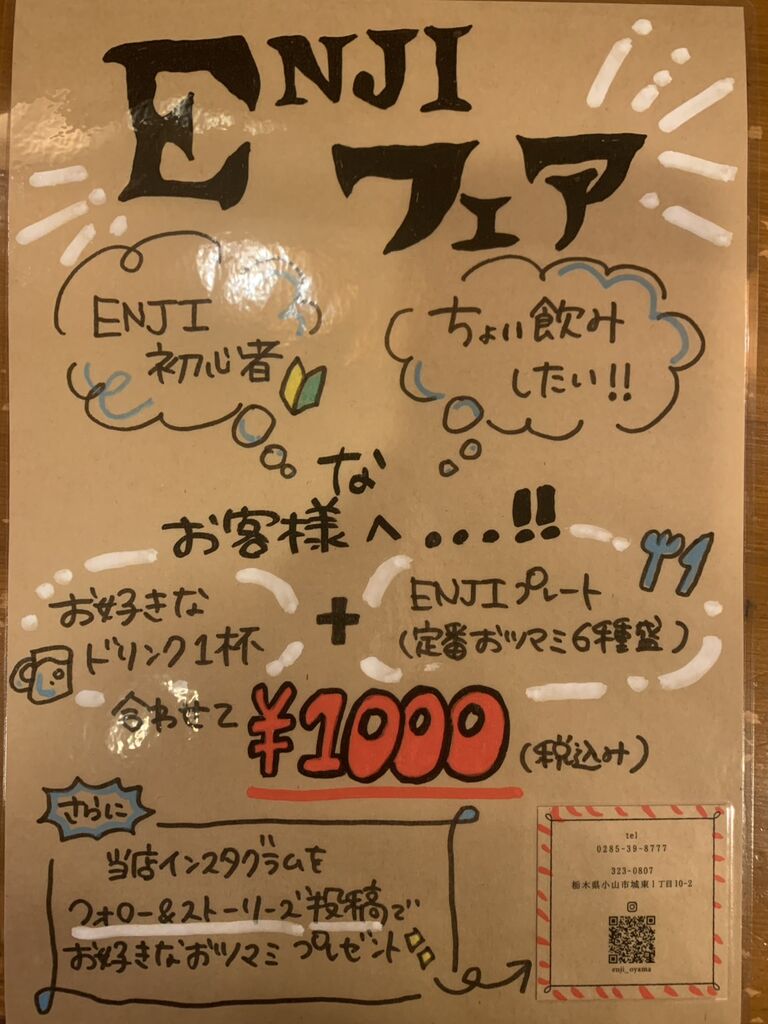 ENJI
フェア
ENJI
初心者
ちょい飲み
したい!!
な
お客様へ...!!
お好きな
ドリンク1杯
+
ENJIプレート
(定番おツマミ6種盛)
合わせて
¥1000(税込み)
さらに
当店インスタグラムを
フォロー&ストーリーズ投稿で
お好きなおツマミプレゼント
tel
0285-39-8777
323-0807
栃木県小山市城東1丁目10-2
enji_oyama